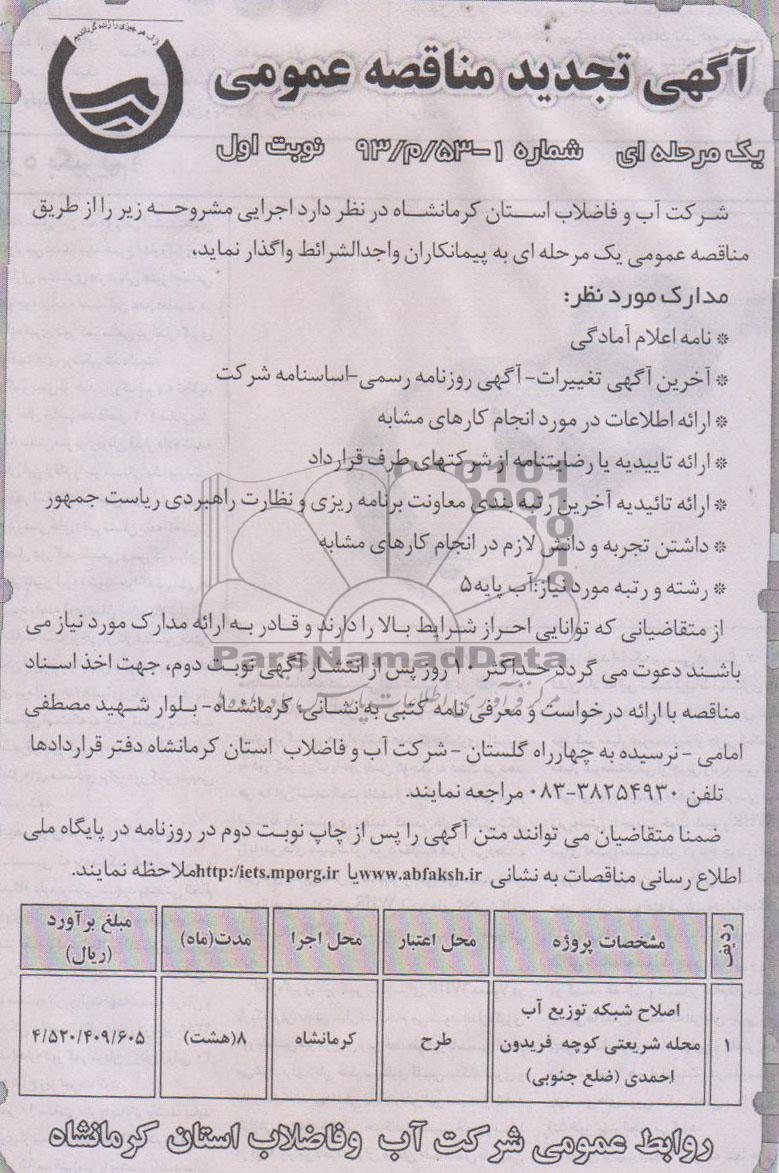 وزف هر چیزی را زنده گردانیدیم
آگهی تجدید مناقصه عمومی
یک مرحله ای شماره ۱-۵۳/م/۹۳ نوبت اول
شرکت آب و فاضلاب استان کرمانشاه در نظر دارد اجرایی مشروحه زیر را از طریق
مناقصه عمومی یک مرحله ای به پیمانکاران واجدالشرائط واگذار نماید.
مدارک مورد نظر:
* نامه اعلام آمادگی
* آخرین آگهی تغییرات- آگهی روزنامه رسمی-اساسنامه شرکت
* ارائه اطلاعات در مورد انجام کارهای مشابه
* ارائه تاییدیه یا رضایتنامه از شرکتهای طرف قرارداد
* ارائه تائیدیه آخرین رتبه بندی معاونت برنامه ریزی و نظارت راهبردی ریاست جمهور
* داشتن تجربه و دانش لازم در انجام کارهای مشابه
* رشته و رتبه مورد نیاز:آب پایه۵
از متقاضیانی که توانایی احراز شرایط بالا را دارند و قادر به ارائه مدارک مورد نیاز می
باشند دعوت می گردد حداکثر ۱۰ روز پس از انتشار آگهی نوبت دوم، جهت اخذ اسناد
مناقصه با ارائه درخواست و معرفی نامه کتبی به نشانی: کرمانشاه- بلوار شهید مصطفی
امامی -نرسیده به چهارراه گلستان -شرکت آب و فاضلاب استان کرمانشاه دفتر قراردادها
تلفن ۳۸۲۵۴۹۳۰-۰۸۳ مراجعه نمایند.
ضمنا متقاضیان می توانند متن آگهی را پس از چاپ نوبت دوم در روزنامه در پایگاه ملی
اطلاع رسانی مناقصات به نشانی www.abfaksh.ir یا http:/iets.mporg.ir ملاحظه نمایند.
ردیف مشخصات پروژه محل اعتبار محل اجرا مدت(ماه) مبلغ برآورد
(ریال)
۱ اصلاح شبکه توزیع آب
محله شریعتی کوچه فریدون
احمدی (ضلع جنوبی) طرح کرمانشاه ۸(هشت) ۴/۵۲۰/۴۰۹/۶۰۵
روابط عمومی شرکت آب وفاضلاب استان کرمانشاه
ParsNamadData